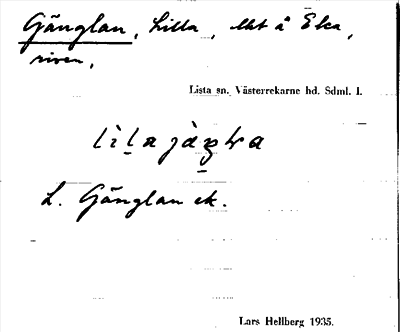 Gånglan, Lilla, lht å Eka,
riven,
Lista sn. Västerrekarne hd. Sdml. l.
L. Gånglan ek.
Lars Hellberg 1935.